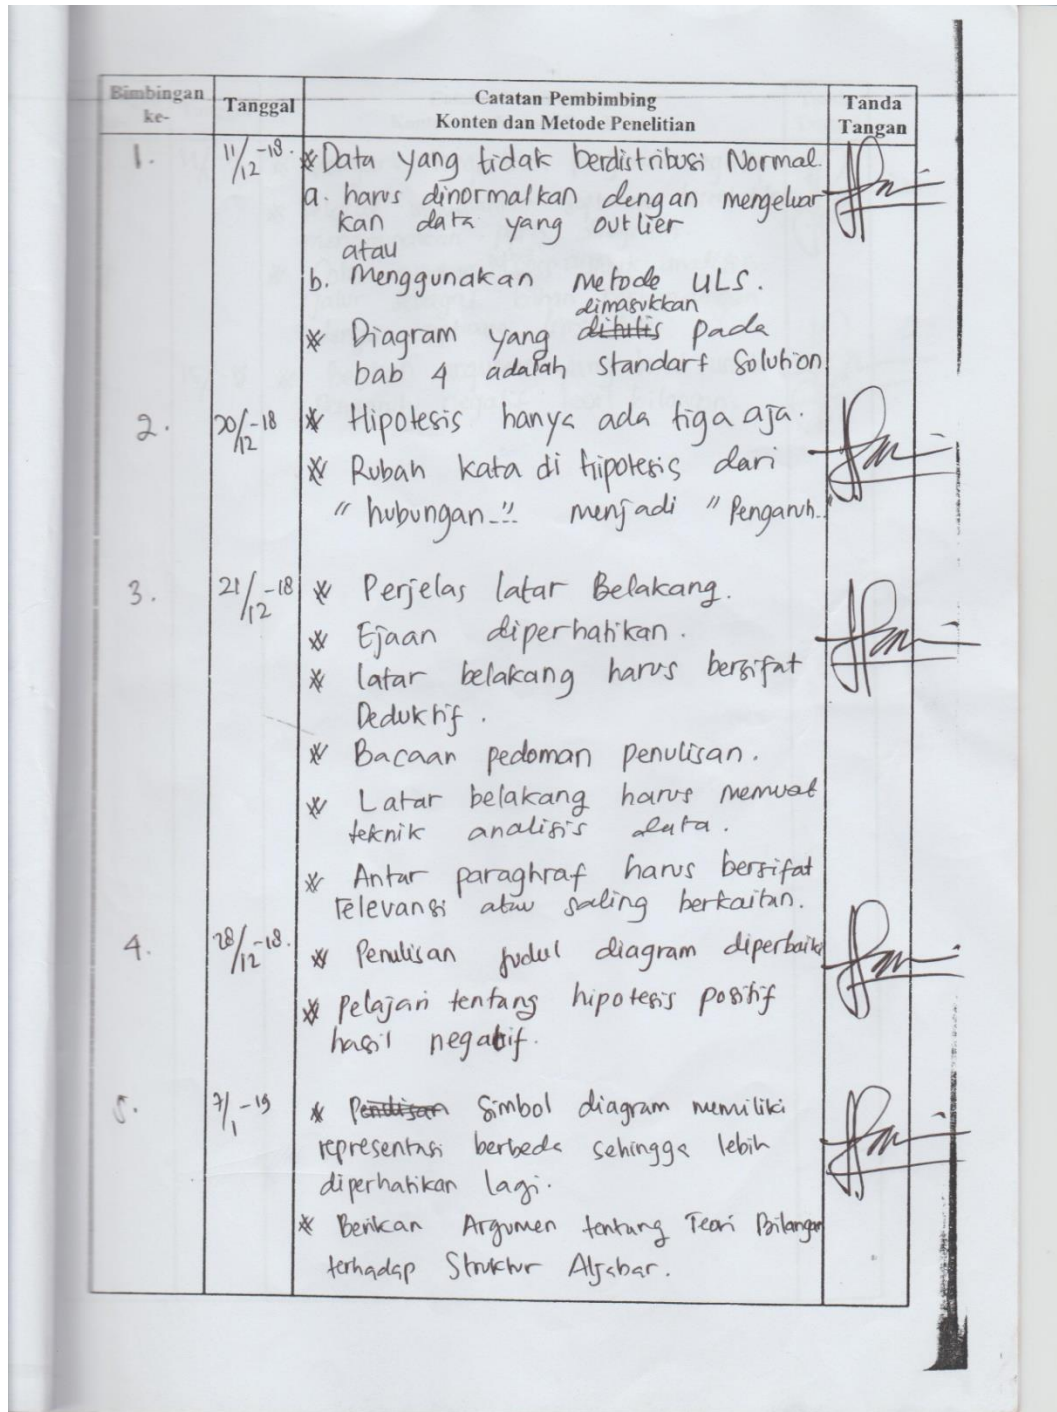 Bimbingan ke-
Tanggal
Catatan Pembimbing
Konten dan Metode Penelitian
Tanda Tangan
1. 11/12-18. * Data yang tidak berdistribusi Normal.
a. harus dinormalkan dengan mengeluar
kan data yang outlier
atau
b. Menggunakan metode ULS.
dimasukkan
* Diagram yang ditulis pada
bab 4 adalah Standart Solution
2. 20/12-18 * Hipotesis hanya ada tiga aja.
* Rubah kata di hipotesis dari
"hubungan.." menjadi "Pengaruh..
3. 21/12-18 * Perjelas latar Belakang.
* Ejaan diperhatikan.
* latar belakang harus bersifat
Deduktif.
* Bacaan pedoman penulisan.
* Latar belakang harus memuat
teknik analisis data.
* Antar paraghraf harus bersifat
relevansi atau saling berkaitan.
4. 28/12-18. * Penulisan judul diagram diperbaiki
* Pelajari tentang hipotesis positif
hasil negatif.
5. 7/1-19 * Penulisan Simbol diagram memiliki
representasi berbeda sehingga lebih
diperhatikan lagi.
* Berikan Argumen tentang Teori Bilangan
terhadap Struktur Aljabar.